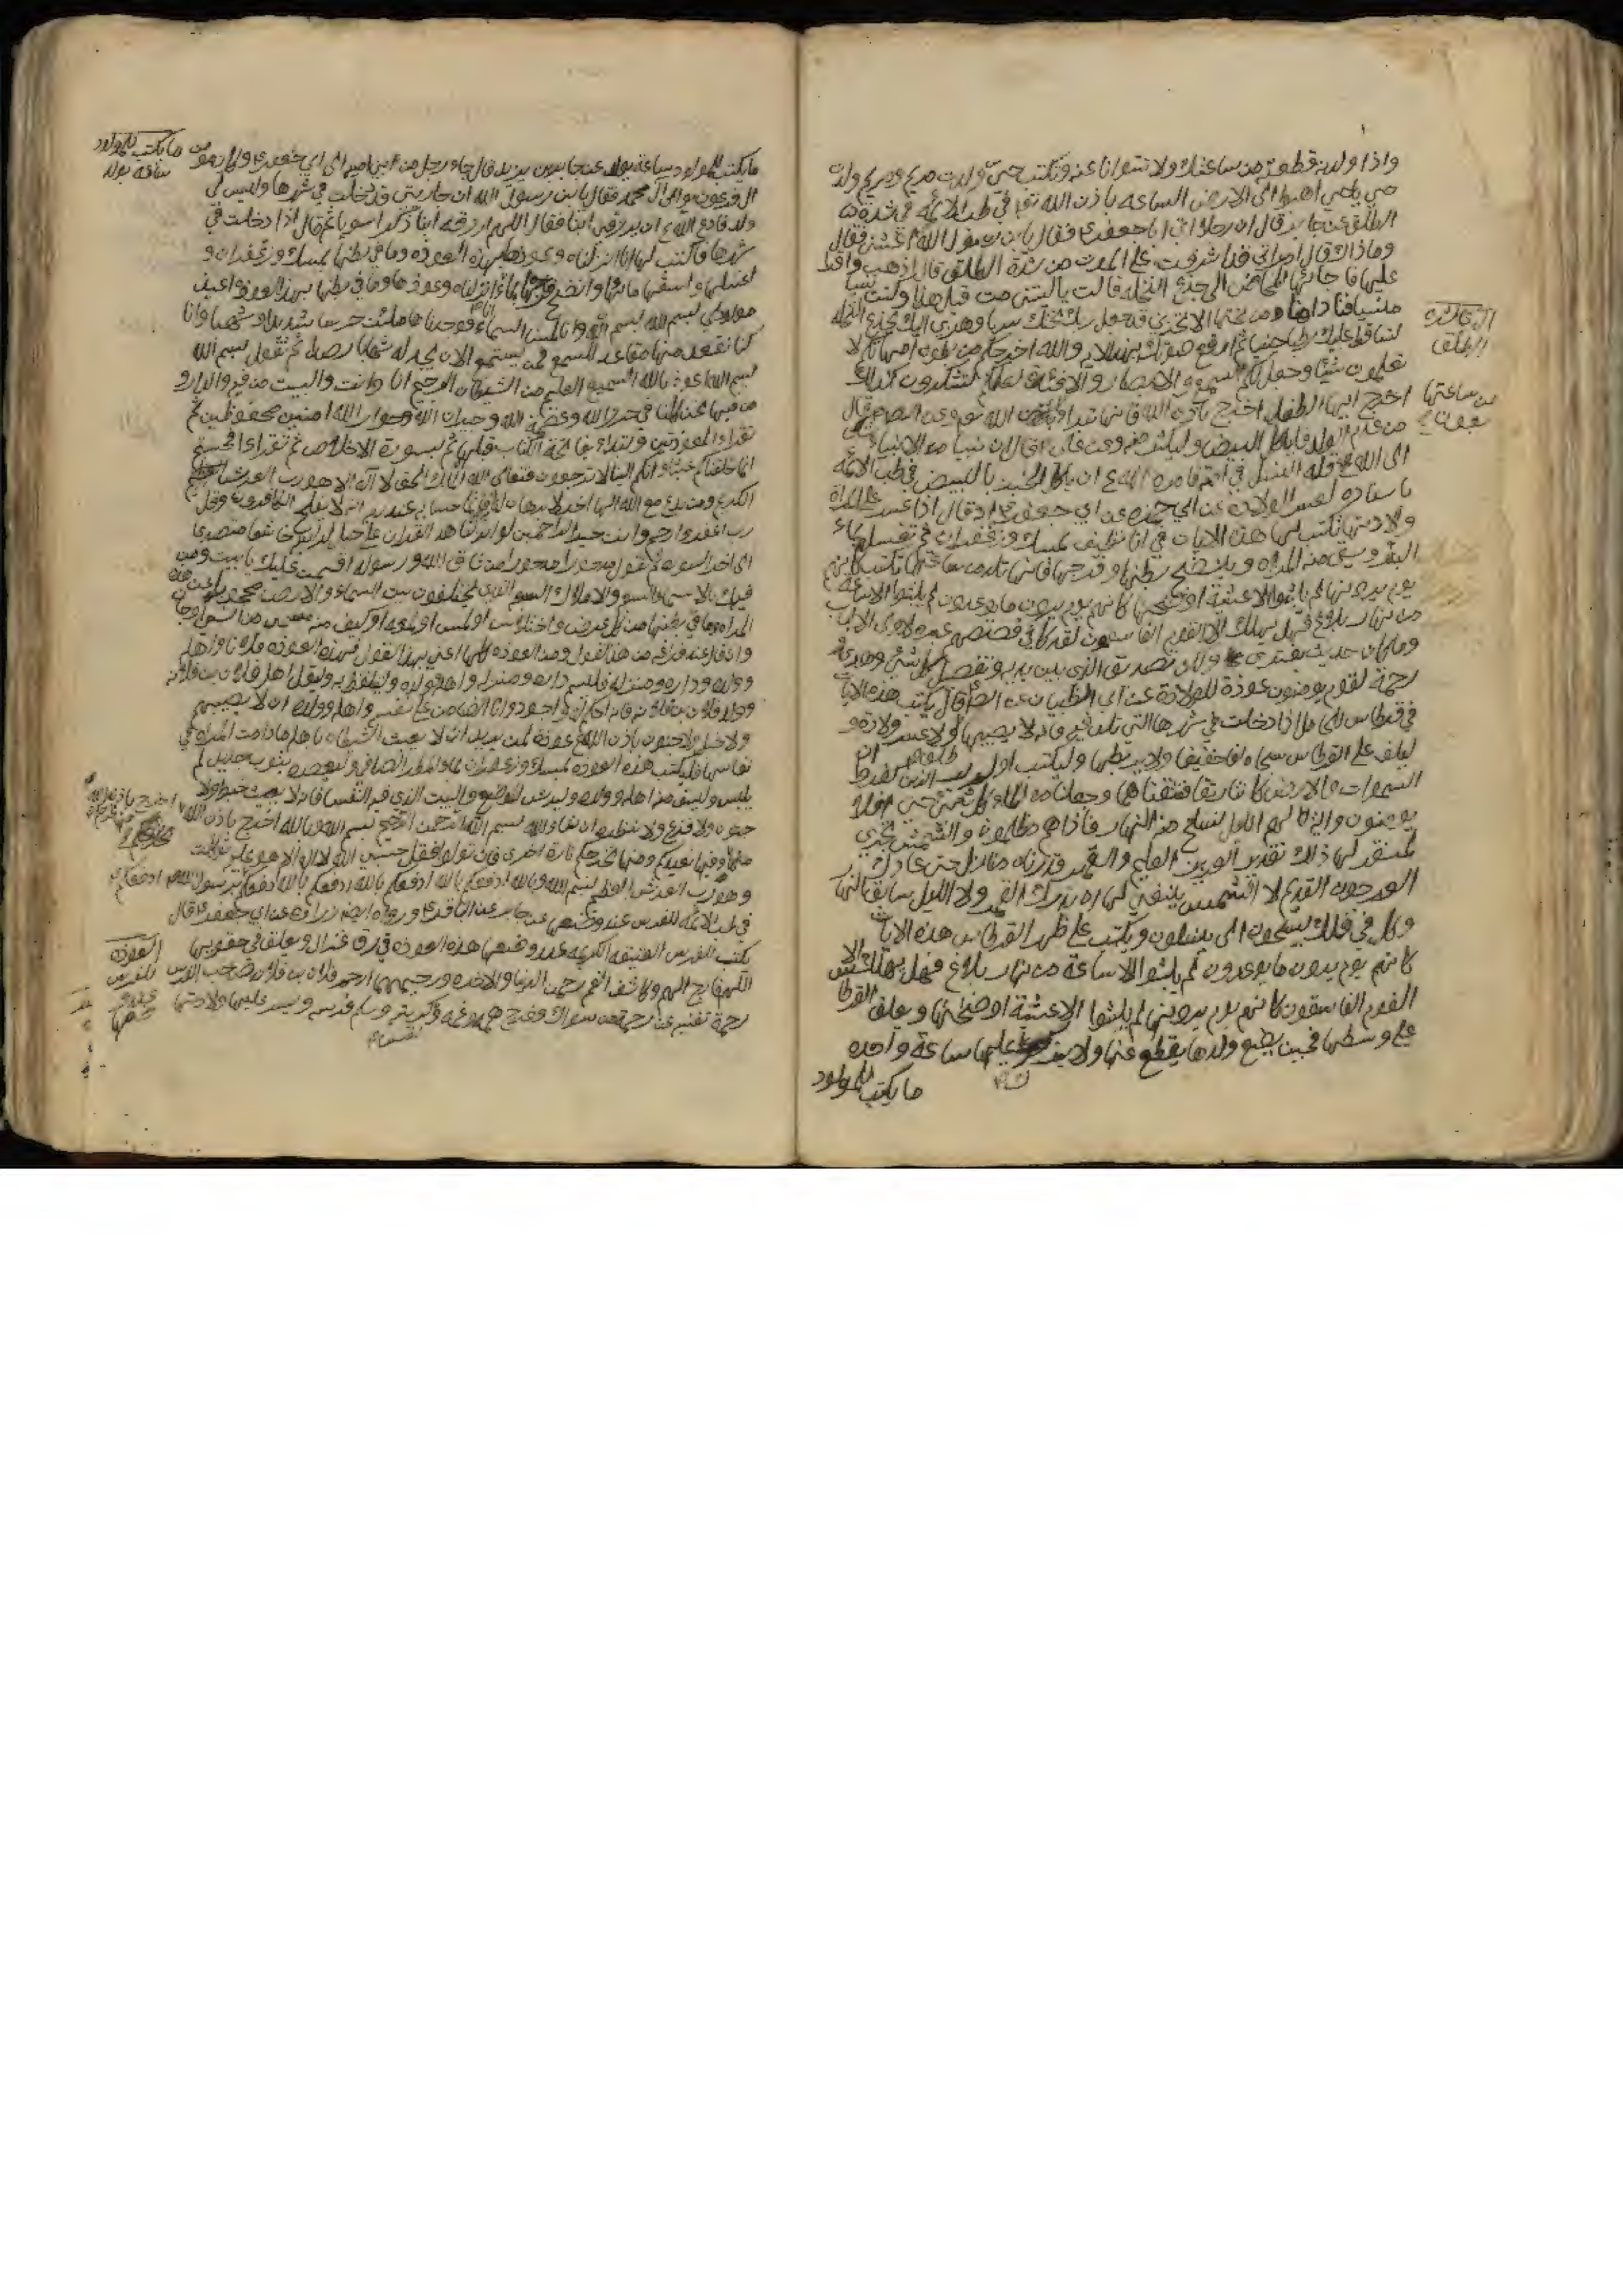 واذا ولدت قطعة من ساعتك ولا تتوانا عنه وتكتب حي ولدت مريم ومريم ولدت
حي يا حي اهبط الى الارض الساعة باذن الله تعا في طب الائمة في شدة
الطلق عن جابر قال ان رجلا اتى ابا جعفر ع فقال يابن رسول الله اغثني فقال
وما ذاك قال امراتي قد اشرفت على الموت من شدة الطلق قال اذهب واقرا
عليها فاجائها المخاض الى جذع النخلة قالت يا ليتني مت قبل هذا وكنت نسيا
منسيا فناداها من تحتها الا تحزني قد جعل ربك تحتك سريا وهزي اليك بجذع النخلة
تساقط عليك رطبا جنيا ثم ارفع صوتك بهذه الاية والله اخرجكم من بطون امهاتكم لا
تعلمون شيئا وجعل لكم السمع والابصار والافئدة لعلكم تشكرون كذلك
اخرج ايها الطفل اخرج باذن الله فانها تبرا
من عدم الولد فلياكل البيض وليكثر منه وعن علي ع قال ان نبيا من الانبياء شكى
الى الله قلة النسل في امته فامره الله ان ياكل الخبز بالبيض في طب الائمة
باسناده لعسر الولادة عن ابي حمزه عن ابي جعفر ع قال اذا عسر على المراة
ولادتها تكتب لها هذه الايات في انا نظيف بمسك وزعفران ثم تغسل بماء
البئر وتسقى منه المراة وينضح بطنها وفرجها فانها تلد من ساعتها تكتب كانهم
يوم يرونها لم يلبثوا الا عشية او ضحيها كانهم يوم يرون ما يوعدون لم يلبثوا الا ساعة
من نهار بلاغ فهل يهلك الا القوم الفاسقون لقد كان في قصصهم عبرة لاولي الالباب
وما كان حديثا يفترى ولكن تصديق الذي بين يديه وتفصيل كل شئ وهدى و
رحمة لقوم يؤمنون عوذة للولادة عن ابي الظبيان عن الص ع قال يكتب هذه الايات
في قرطاس للحامل اذا دخلت في شهرها التي تلد فيه فانه لا يصيبها طلق ولا عسر ولادة و
ليلف على القرطاس سحاه لفا خفيفا ولا يربطها وليكتب اولم ير الذين كفروا ان
السموات والارض كانتا رتقا ففتقناهما وجعلنا من الماء كل شئ حي افلا
يومنون واية لهم الليل نسلخ منه النهار فاذا هم مظلمون والشمس تجري
لمستقر لها ذلك تقدير العزيز العليم والقمر قدرناه منازل حتى عاد ك
العرجون القديم لا الشمس ينبغي لها ان تدرك القمر ولا الليل سابق النهار
وكل في فلك يسبحون الى ينسلون ويكتب على ظهر القرطاس هذه الايات
كانهم يوم يرون ما يوعدون لم يلبثوا الا ساعة من نهار بلاغ فهل يهلك الا
القوم الفاسقون كانهم يوم يرونها لم يلبثوا الا عشية او ضحيها ويعلق القرطاس
على وسطها فحين يضع ولدها يقطع عنها ولا يترك عليها ساعة واحده
ما يكتب للمولود
من ساعتها
ما يكتب للمولود ساعة يولد
ما يكتب للمولود ساعة يولد عن جابر بن يزيد قال جاء رجل من بني امية الى ابي جعفر ع وكان مؤمن من
ال فرعون يوالي ال محمد فقال يابن رسول الله ان جاريتي قد دخلت في شهرها وليس لي
ولد فادع الله ان يرزقني ابنا فقال اللهم ارزقه ابنا ذكرا سويا ثم قال اذا دخلت في
شهرها فاكتب لها انا انزلناه وعوذها بهذه العوذة وما في بطنها بمسك وزعفران و
اغسلها واسقها ماءها وانضح فرجها بماء انا انزلناه وعوذ ما في بطنها بهذه العوذة اعيذ
مولودي بسم الله بسم الله وانا لمسنا السماء فوجدناها ملئت حرسا شديدا وشهبا وانا
كنا نقعد منها مقاعد للسمع فمن يستمع الان يجد له شهابا رصدا ثم تقول بسم الله
بسم الله اعوذ بالله السميع العليم من الشيطان الرجيم انا وانت والبيت من فيه والدار و
من فيها نحن كلنا في حرز الله وعصمة الله وجيران الله وجوار الله امنين محفوظين ثم
تقرا المعوذتين وتبدا بفاتحة الكتاب قبلها ثم بسورة الاخلاص ثم تقرا افحسبتم
انما خلقناكم عبثا وانكم الينا لا ترجعون فتعالى الله الملك الحق لا اله الا هو رب العرش
الكريم ومن يدع مع الله الها اخر لا برهان له به فانما حسابه عند ربه انه لا يفلح الكافرون وقل
رب اغفر وارحم وانت خير الراحمين لو انزلنا هذا القران على جبل لرايته خاشعا متصدعا
الى اخر السورة ثم تقول مدحورا مدحورا من شاق الله ورسوله اقسمت عليك يا بيت ومن
فيك بالاسماء السبعة والاملاك السبع الذين يختلفون بين السماء والارض محجوبا عن هذه
المراة وما في بطنها من كل عرض واختلاس او لمس او لمعة او طيف مس من انس او جان
وان قال عند فراغه من هذا القول ومن العوذة كلها اعني بهذا القول وهذه العوذة فلانا واهله
وولده وداره ومنزله فليسم داره ومنزله واهله وولده وليلفظ به وليقل اهل فلان بن فلانه
وولد فلان بن فلانه فانه احكم له واجود وانا الضامن على نفسه واهله وولده ان لا يصيبهم
ولا خبل ولا جنون باذن الله ع عوذة لمن يريد ان لا يعبث الشيطان باهله ما دامت المراة في
نفاسها فليكتب هذه العوذة بمسك وزعفران بماء المطر الصافي وليعصره بثوب جديد لم
يلبس وليسق منه اهله وولده وليرش الموضع والبيت الذي فيه النفساء فانه لا يصيب
جنون ولا فزع ولا نظرة ان شاء الله بسم الله الرحمن الرحيم بسم الله وبالله اخرج باذن الله
منها وفيها نعيدكم ومنها نخرجكم تارة اخرى فان تولوا فقل حسبي الله لا اله الا هو عليه توكلت
وهو رب العرش العظيم بسم الله وبالله ادفعكم بالله ادفعكم بالله ادفعكم برسول الله ص ادفعكم
في طب الائمة للفرس عند وضعها عن جابر عن الباقر ع ورواه ايضا زرارة عن ابي جعفر ع قال
يكتب للفرس العتيقة الكريمة عند وضعها هذه العوذة في رق غزال ويعلق في حقويها
اللهم فارج الهم وكاشف الغم رحمن الدنيا والاخرة ورحيمهما ارحم فلان بن فلان صاحب الفرس
رحمة تغنيه عن رحمة من سواك وفرج همه وغمه ونفس كربته وسلم فرسه ويسر عليها ولادتها
العوذة
للفرس
عند و
ضعها